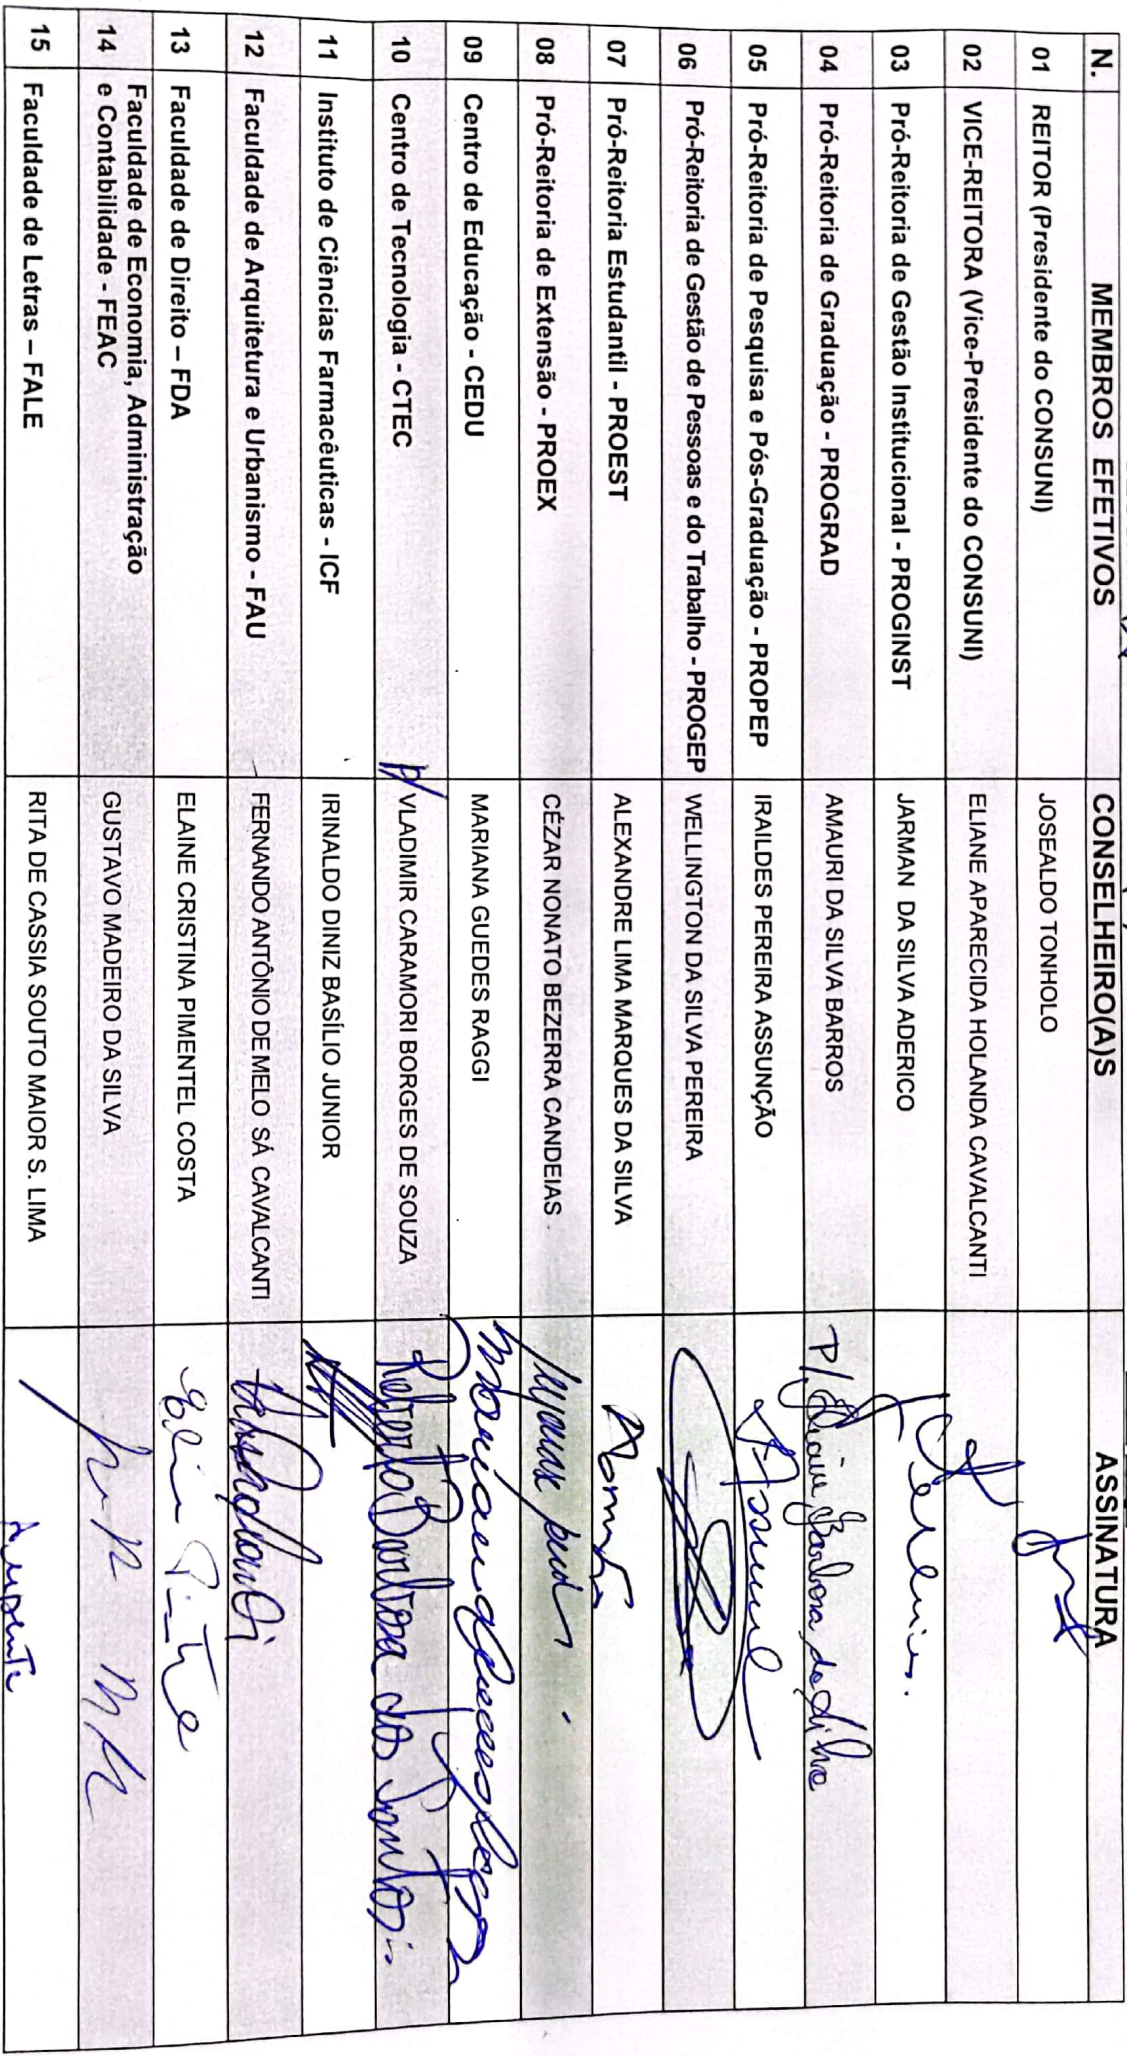 N. MEMBROS EFETIVOS CONSELHEIRO(A)S ASSINATURA
01 REITOR (Presidente do CONSUNI) JOSEALDO TONHOLO
02 VICE-REITORA (Vice-Presidente do CONSUNI) ELIANE APARECIDA HOLANDA CAVALCANTI
03 Pró-Reitoria de Gestão Institucional - PROGINST JARMAN DA SILVA ADERICO
04 Pró-Reitoria de Graduação - PROGRAD AMAURI DA SILVA BARROS P/ Barbosa da Silva
05 Pró-Reitoria de Pesquisa e Pós-Graduação - PROPEP IRAILDES PEREIRA ASSUNÇÃO
06 Pró-Reitoria de Gestão de Pessoas e do Trabalho - PROGEP WELLINGTON DA SILVA PEREIRA
07 Pró-Reitoria Estudantil - PROEST ALEXANDRE LIMA MARQUES DA SILVA
08 Pró-Reitoria de Extensão - PROEX CÉZAR NONATO BEZERRA CANDEIAS
09 Centro de Educação - CEDU MARIANA GUEDES RAGGI Mariana Guedes Raggi
10 Centro de Tecnologia - CTEC P/ VLADIMIR CARAMORI BORGES DE SOUZA Roberto Barbosa dos Santos
11 Instituto de Ciências Farmacêuticas - ICF IRINALDO DINIZ BASÍLIO JUNIOR
12 Faculdade de Arquitetura e Urbanismo - FAU FERNANDO ANTÔNIO DE MELO SÁ CAVALCANTI
13 Faculdade de Direito – FDA ELAINE CRISTINA PIMENTEL COSTA
14 Faculdade de Economia, Administração
e Contabilidade - FEAC GUSTAVO MADEIRO DA SILVA
15 Faculdade de Letras – FALE RITA DE CASSIA SOUTO MAIOR S. LIMA Ausente